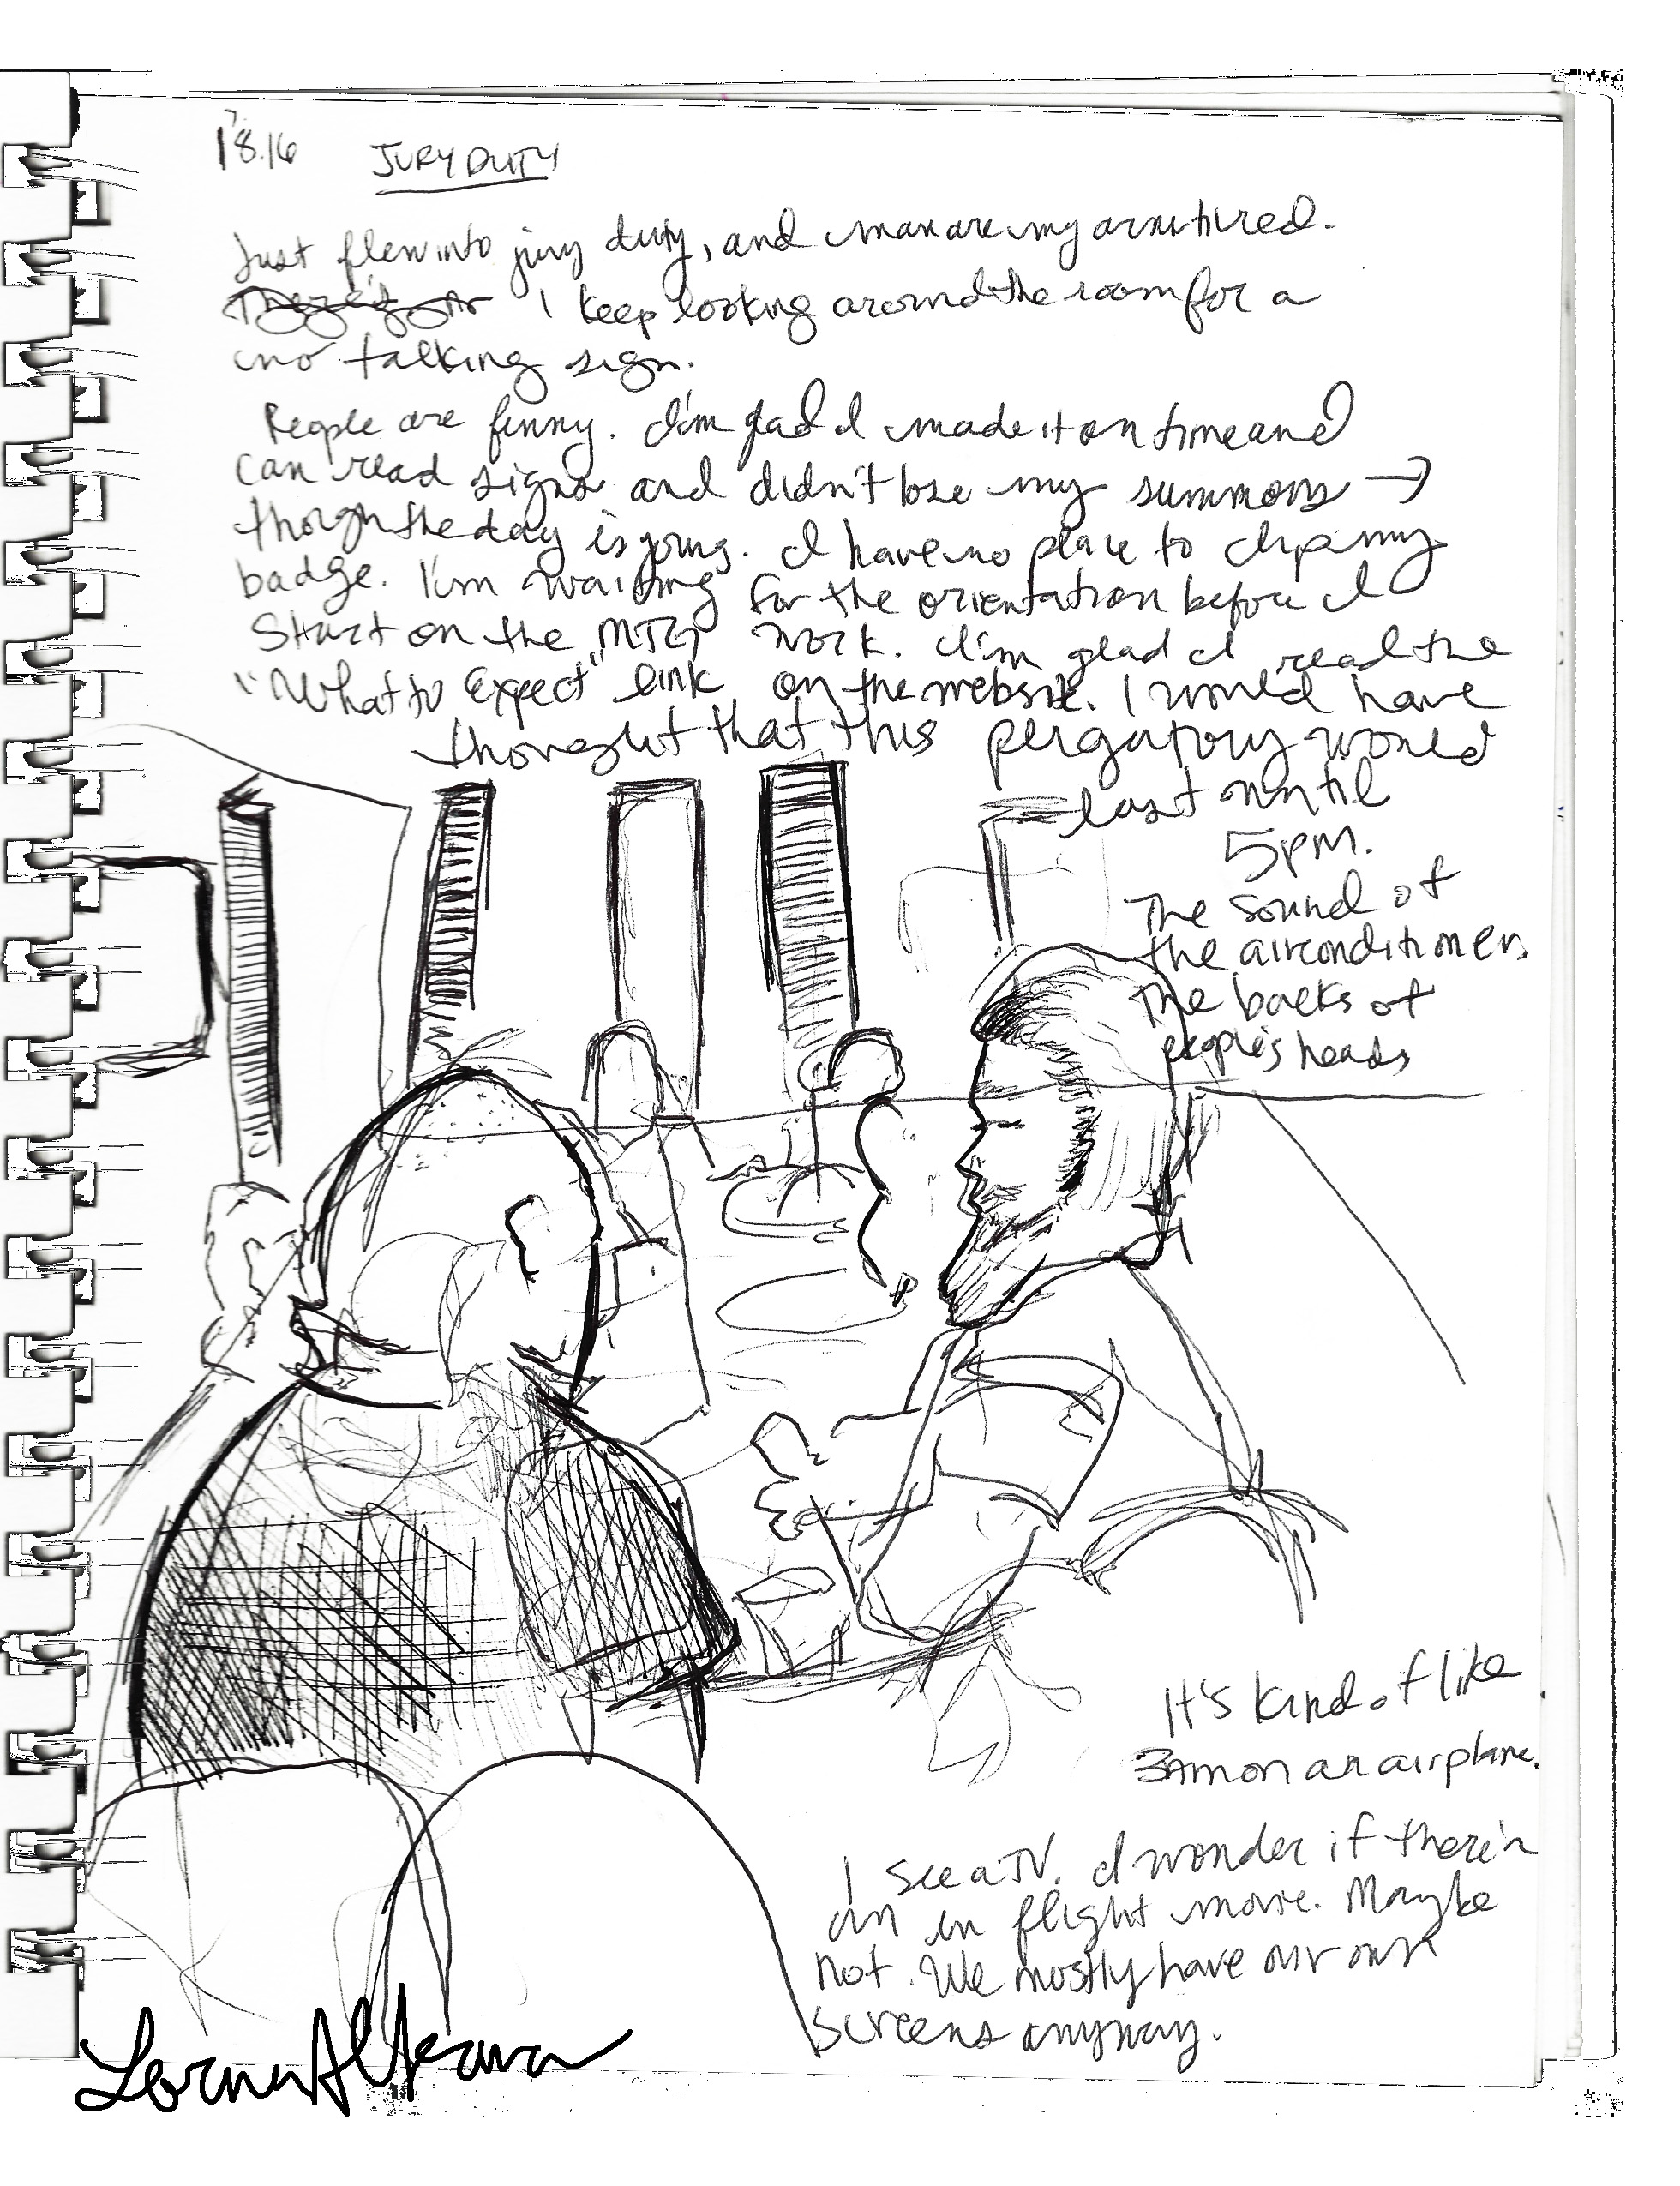 7.18.16 JURY DUTY
Just flew into jury duty, and man are my arms tired.
I keep looking around the room for a
no talking sign.
People are funny. I'm glad I made it on time and
can read signs and didn't lose my summons →
though the day is young. I have no place to clip my
badge. I'm waiting for the orientation before I
start on the MTG work. I'm glad I read the
"What to Expect" link on the website. I would have
thought that this pergatory would
last until
5pm.
The sound of
the airconditioner.
The backs of
people's heads
It's kind of like
3AM on an airplane.
I see a TV. I wonder if there's
an in flight movie. Maybe
not. We mostly have our own
screens anyway.